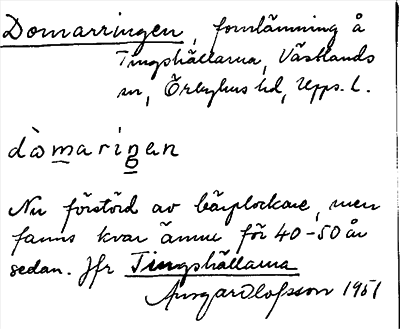 Domarringen, fornlämning å
Tingshällarna, Västlands
sn, Örbyhus hd, Upps. l.
dòmariŋen
Nu förstörd av bärplockare, men
fanns kvar ännu för 40-50 år
sedan. Jfr Tingshällarna
Ansgar Olofsson 1951